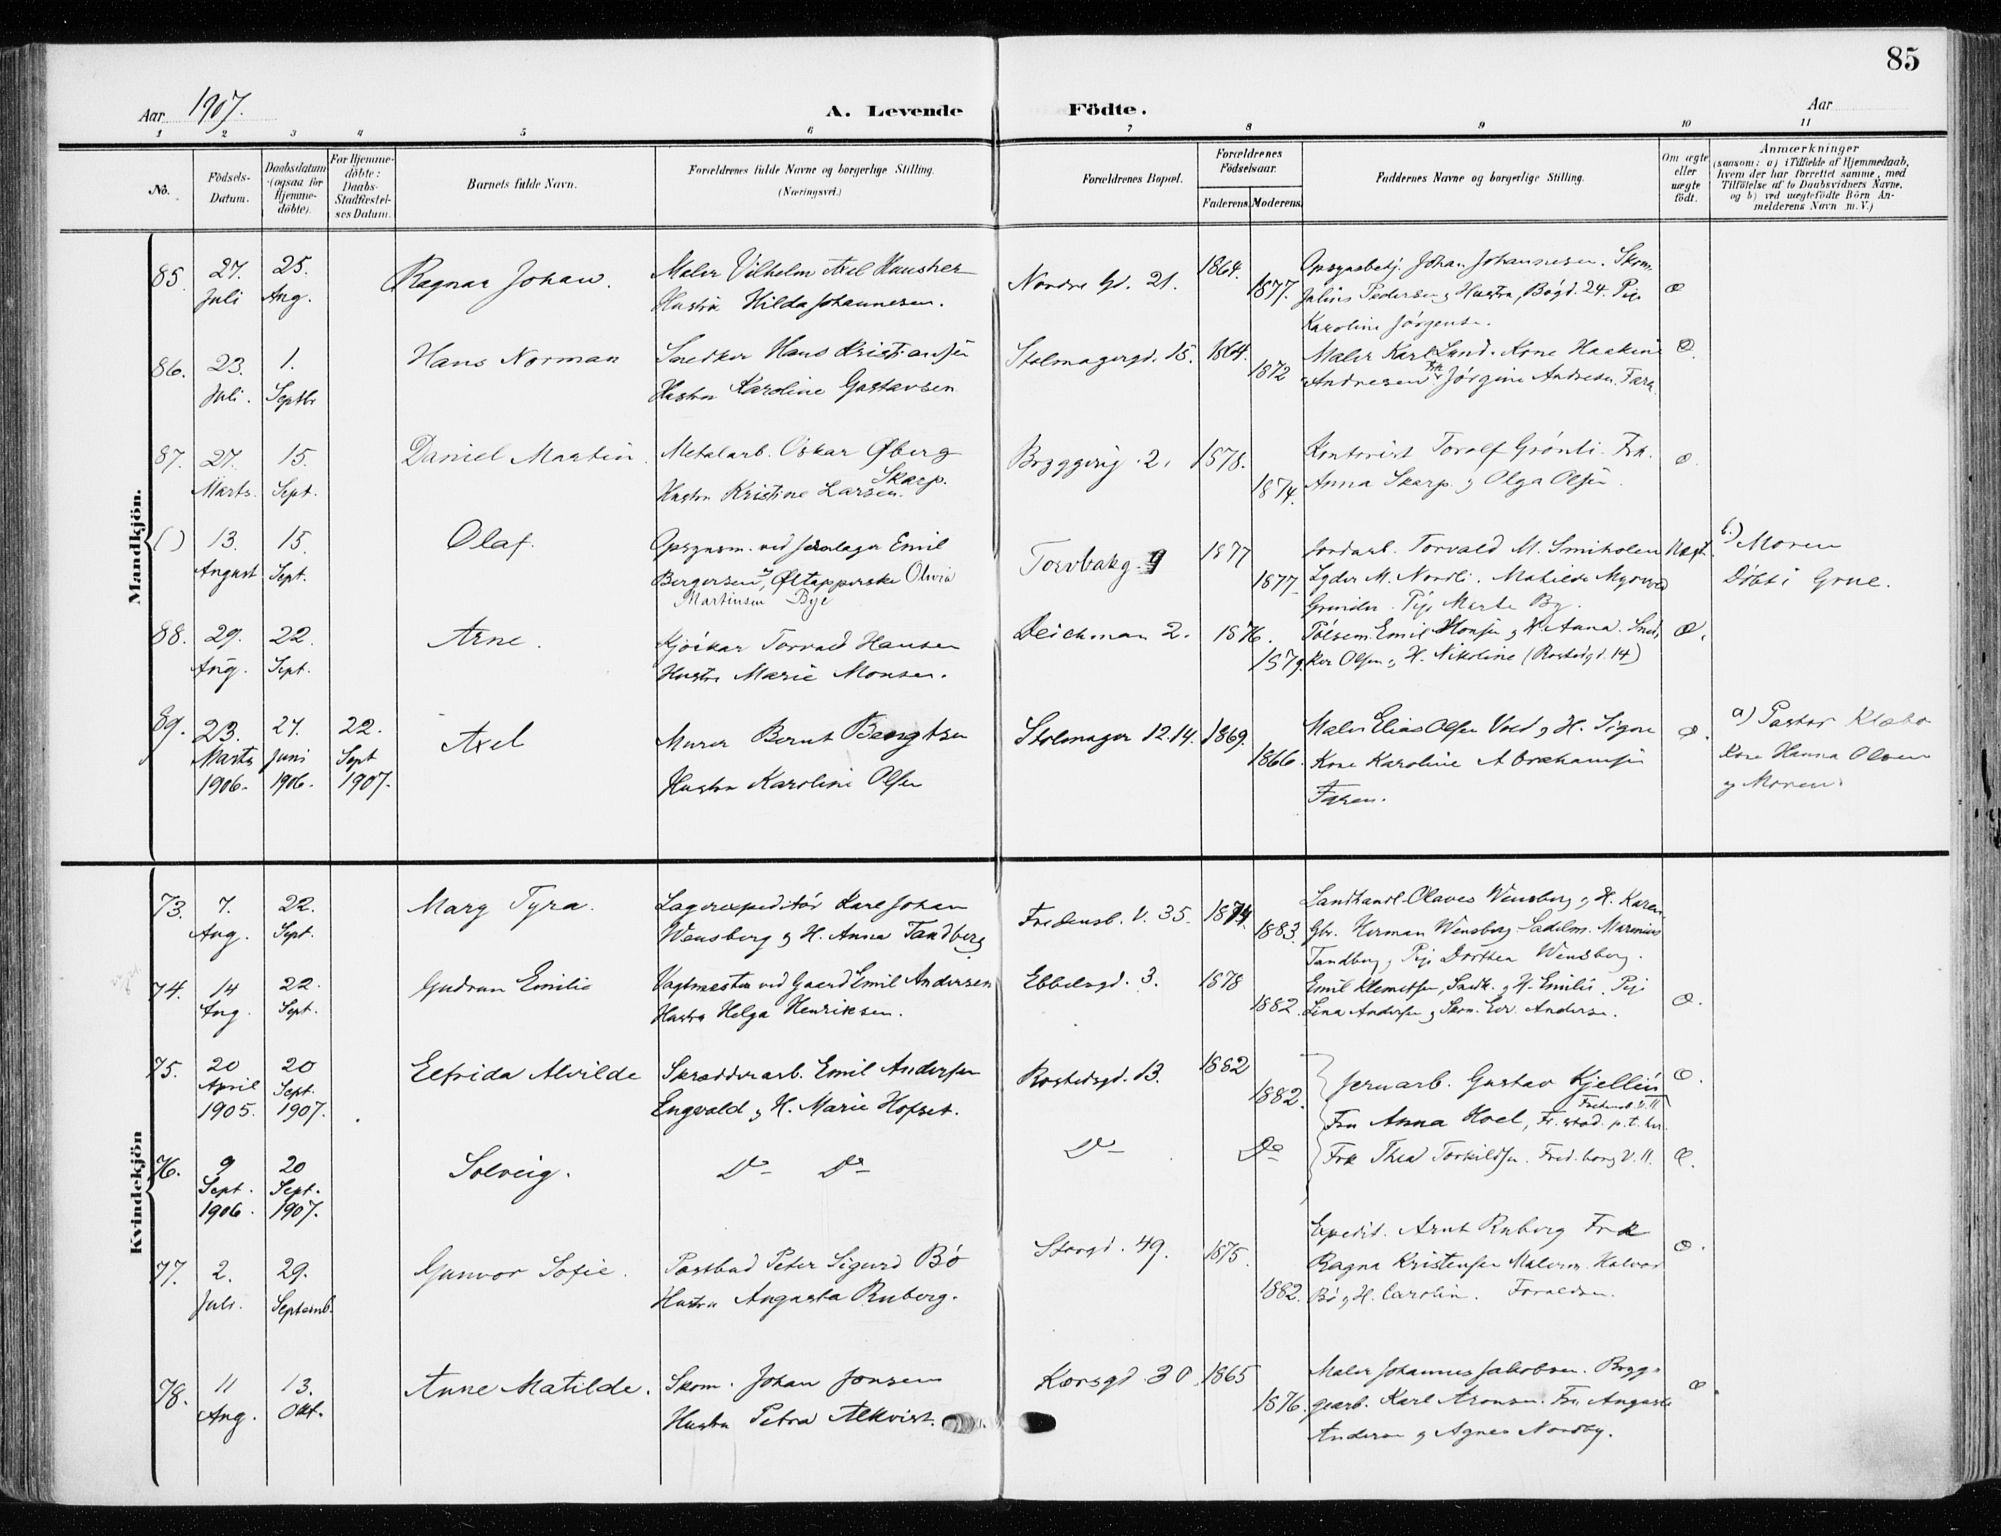 85
Aar 1907.
A. Levende Födte.
Aar
1 2 3 4 5 6 7 8 9 10 11
No.
Födsels-
Datum.
Daabsdatum
(ogsaa for
Hjemme-
döbte).
For Hjemme-
döbte:
Daabs-
Stadfæstel-
ses Datum.
Barnets fulde Navn.
Forældrenes fulde Navne og borgerlige Stilling.
(Næringsvei.)
Forældrenes Bopæl.
Forældrenes
Födselsaar.
Faderens. Moderens.
Faddernes Navne og borgerlige Stilling.
Om ægte
eller
uægte
födt.
Anmærkninger
(saasom: a) i Tilfælde af Hjemmedaab,
hvem der har forrettet samme, med
Tilföielse af to Daabsvidners Navne,
og b) ved uægtefödte Börn An-
melderens Navn m. V.)
Mandkjön.
85.
27.
Juli
25.
Aug.
Ragnar Johan.
Maler Vilhelm Axel Hausher
Hustru Hilda Johannesen.
Nordre Gd. 21.
1864.
1877.
Johan Johannesen. Skom.
Julius Pedersen og Hustru, Bøgd. 24. Pige
Karoline Jørgense.
Æ
86.
23.
Juli.
1.
Septbr
Hans Norman
Snedker Hans Kristiansen
Hustru Karoline Gustavsen
Stolmagergd. 15.
1864.
1872
Maler Karl Lund. Kone Haakine
Andresen Frk Jørgine Andresen. Faren
Æ
87.
27.
Marts.
15.
Sept.
Daniel Martin.
Metalarb. Oskar Øberg
Skarp.
Hustru Kristine Larsen.
Bryggerig. 2.
1878.
1874.
Kontorist Torolf Grønli. Frk.
Anna Skarp og Olga Olsen.
Æ
( )
13.
August
15.
Sept.
Olaf.
Opsynsm. ved Jernlager Emil
Bergersen, Øltapperske Olivia
Martinsen Bye
Torvbakg. 9
1877
1877
Jordarb. Torvald M. Smiholen
Lyder M. Nordli. Matilde
Pige Marte By.
Uægt.
b.) Moren
Døbt i Grue.
88.
29.
Aug.
22.
Sept.
Arne.
Kjørekar Torvald Hansen
Hustru Marie Monsen.
Deichman 2.
1876.
1879.
Pølsem. Emil Hansen og H. Anna. Sned-
ker Olsen og H. Nikoline (Rostedgd. 14)
Æ.
89.
23.
Marts
1906.
27.
Juni
1906.
22.
Sept
1907.
Axel
Murer Bernt Bengtsen
Hustru Karoline Olsen
Stolmager 12.14.
1869.
1866.
Maler Elias Olsen Vold og H. Signe
Kone Karoline Abrahamsen
Faren.
Æ.
a) Pastor Klæbo
Kone Hanna Olsen
og Moren.
Kvindekjön
73.
7.
Aug.
22.
Sept.
Mary Tyra.
Lagerexpeditør Karl Johan
Wensberg og H. Anna Tandberg
Fredensb. V. 35.
1874.
1883.
Landhandl. Olaves Wensberg og H. Karen
Gbr. Herman Wensberg Sadelm. Marenius
Tandberg, Pige Dorthea Wensberg.
74.
14
Aug.
22.
Sept.
Gudrun Emilie
Vagtmester ved Gaard Emil Andersen
Hustru Helga Henriksen.
Ebbelsgd. 3.
1878
1882.
Emil Klemetsen, Snedk. og H. Emilie. Pige
Lina Andersen og Skom. Edv. Anderse.
Æ.
75.
20
April
1905.
20
Sept.
1907.
Elfrida Alvilde
Skrædderarb. Emil Andersen
Engvald og H. Marie Hofset.
Rostedsgd. 13.
1882
1882.
Jernarb. Gustav Kjellén
Fredensb. V. 11
Fru Anna Hoel, Fr.stad. p.t. her.
Æ.
76.
9
Sept.
1906.
20
Sept.
1907.
Solveig.
Do Do
Do
Do
Frk Thea Torkildsen. Fred.borg V. 11.
Æ.
77.
2.
Juli.
29.
Septemb.
Gunvor Sofie.
Postbud Peter Sigurd Bö
Hustru Augusta Ruberg.
Storgd. 49.
1875.
1882.
Expedit. Arnt Ruberg Frk
Ragna Kristensen Malerm. Halvor
Bö og H. Carolin. Forældrene.
Æ.
78.
11
Aug.
13.
Okt.
Anne Matilde.
Skom. Johan Jonsen
Hustru Petra Alkvist.
Korsgd 30.
1865
1876.
Maler Johannes Jakobsen. Brygg-
gearb. Karl Aronsen. Fru Augusta
Anderson og Agnes Nordby.
Æ.